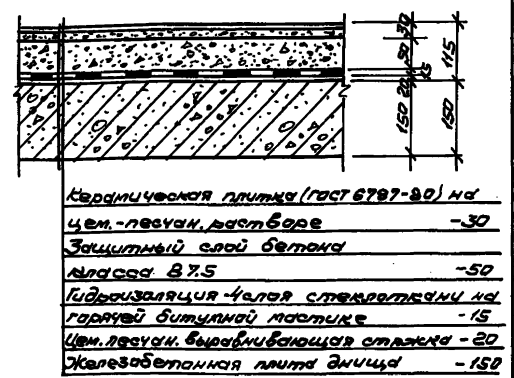 30
50
15
20
150
115
150
Керамическая плитка (гост 6787-80) на
цем.-песчан. растворе -30
Защитный слой бетона
класса В 7.5 -50
Гидроизоляция-4слоя стеклоткани на
горячей битумной мастике -15
Цем. песчан. выравнивающая стяжка -20
Железобетонная плита днища -150